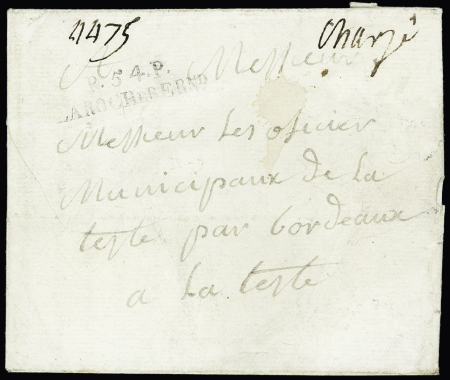 4475 Chargé
A Messieur
P.54.P.
LAROCHEBERND
Messieur les oficier
Municipaux de La
teste par bordeaux
a La teste